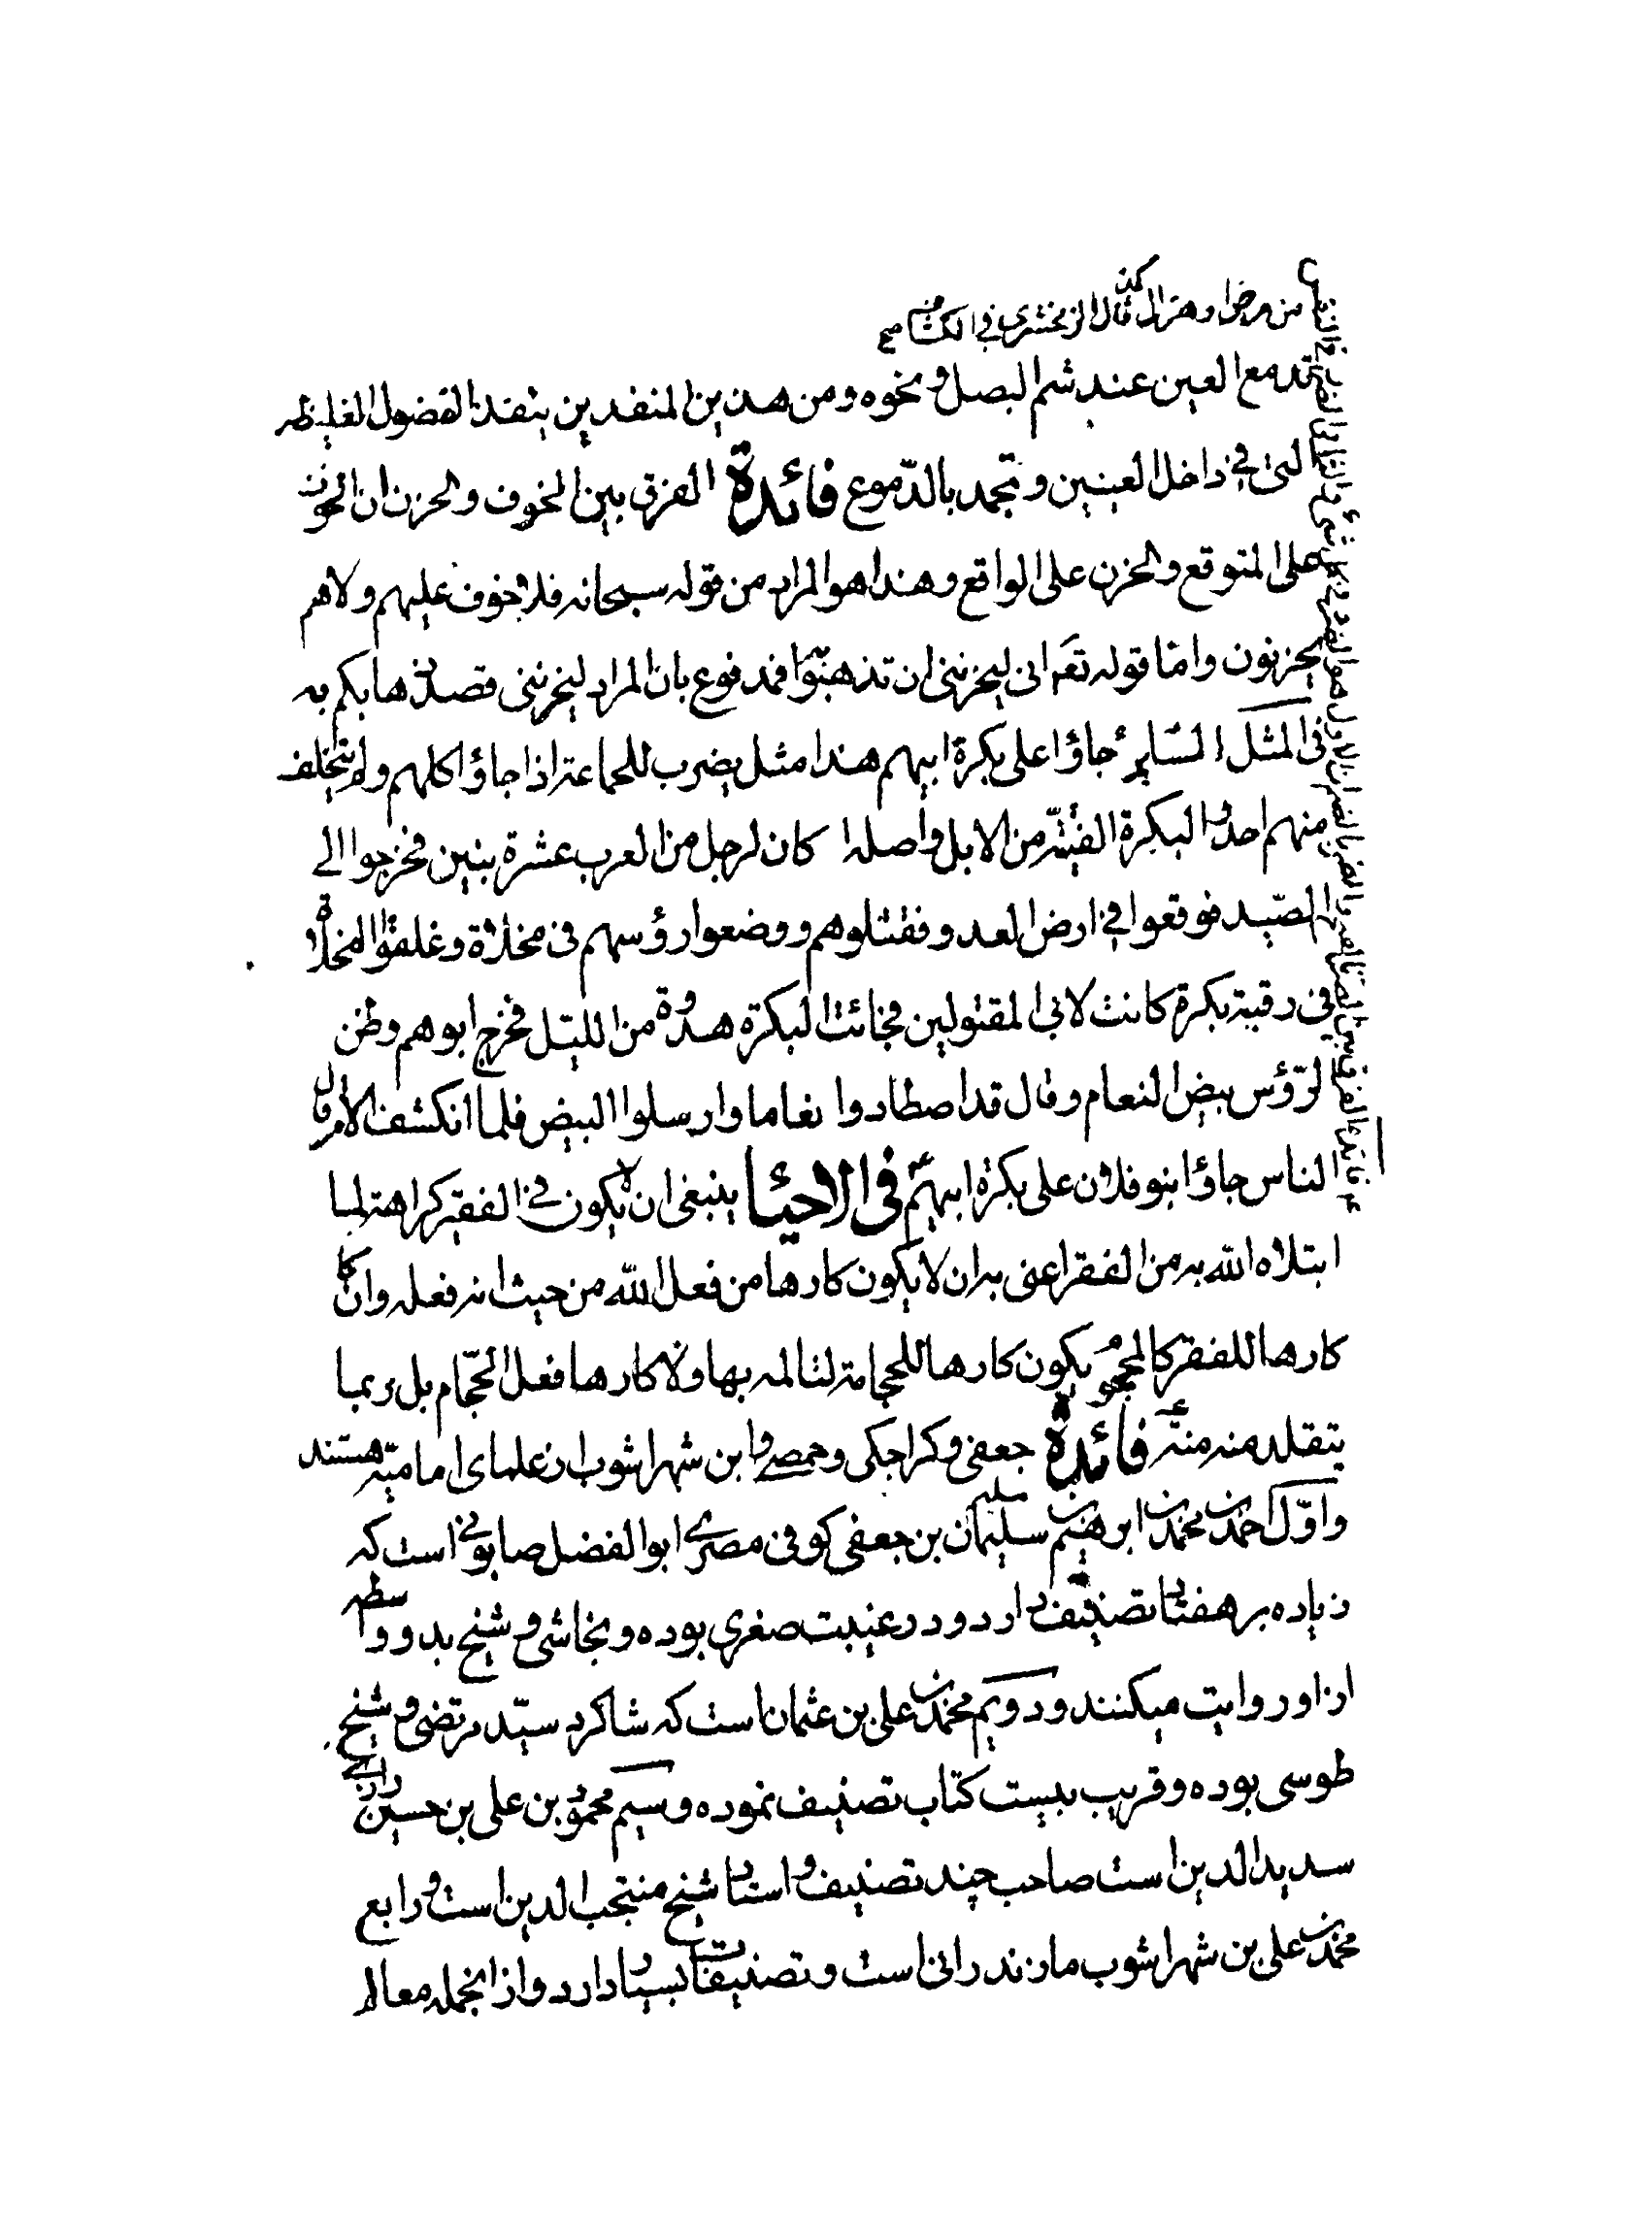 من مرض او هزال كذا قال الزمخشري في الكشاف منه
تدمع العين عند شم البصل و نحوه و من هذين المنفذين ينفذ الفضول الغليظه
التى في داخل العينين و تجمد بالدّموع فائدة الفرق بين الخوف و الحزن ان الخوف
على المتوقع و الحزن على الواقع و هذا هو المراد من قوله سبحانه فلا خوف عليهم و لا هم
يحزنون و امّا قوله تعه انى ليحزننى ان تذهبوا فمدفوع بان المراد ليحزننى قصد ذهابكم به
فى المثل السّاير جاؤا على بكرة ابيهم هذا مثل يضرب للجماعة اذا جاؤا كلهم و لم يتخلف
منهم احد و البكرة الفتيّة من الابل و اصله كان لرجل من العرب عشرة بنين فخرجوا الى
الصّيد فوقعوا في ارض العدو فقتلوهم و وضعوا رؤسهم فى مخلاة و علقوا المخلاة
فى رقبة بكرة كانت لابى المقتولين فجائت البكرة هدوة من الليل فخرج ابوهم و ظن
الرّؤس بيض النعام و قال قد اصطادوا نعاما و ارسلوا البيض فلما انكشف الامر قال
الناس جاؤا بنو فلان على بكرة ابيهم فى الاحيا ينبغى ان لا يكون فى الفقير كراهة لما
ابتلاه الله به من الفقر اعنى به ان لا يكون كارها من فعل الله من حيث انه فعله و ان كا
كارها للفقر كالمحجوم يكون كارها للحجامة لتالمه بها و لا كارها فعل الحجّام بل ربما
يتقلد منه منة فائدة جعفى و كراجكى و حمصى و ابن شهراشوب از علماى اماميّه هستند
و اوّل احمد بن محمد بن ابرهيم بن سليمان بن جعفى كوفى مصرى ابو الفضل صابونى است كه
زياده بر هفتاد تصنيف دارد و در غيبت صغرى بوده و نجاشى و شيخ بدو واسطه
از او روايت ميكنند و دويم محمد بن على بن عثمان است كه شاكرد سيّد مرتضى و شيخ
طوسى بوده و قريب ببيست كتاب تصنيف نموده و سيم محمود بن على بن حسين رازى
سديد الدين است صاحب چند تصنيف و استاد شيخ منتجب الدين است و رابع
محمد بن على بن شهراشوب مازندرانى است و تصنيفات بسيار دارد و از انجمله معالم